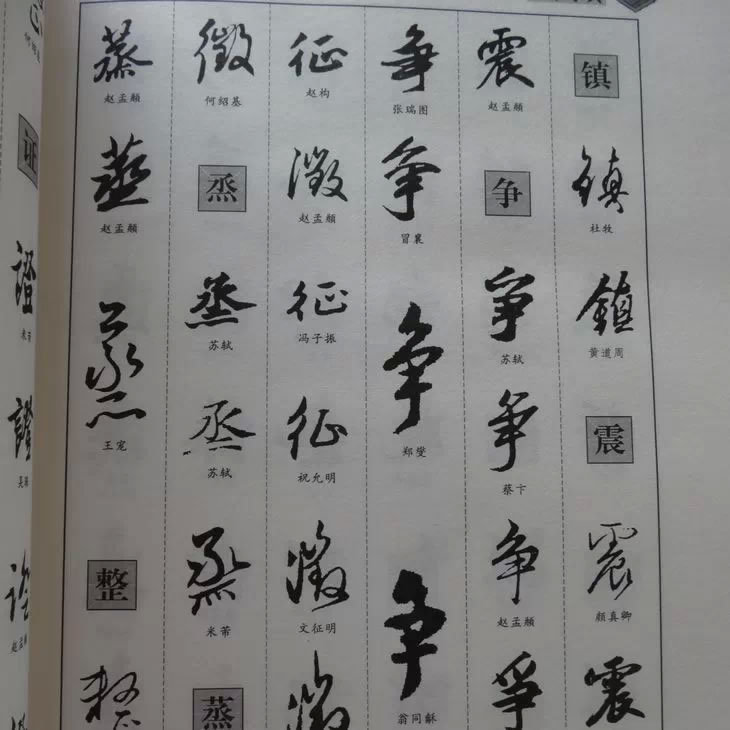 镇
鎮
杜牧
鎮
黄道周
震
震
颜真卿
震
震
赵孟頫
争
爭
苏轼
爭
蔡卞
争
赵孟頫
爭
争
张瑞图
争
冒襄
争
郑燮
争
翁同龢
征
赵构
徵
赵孟頫
征
冯子振
征
祝允明
徵
文征明
徵
徵
何绍基
烝
烝
苏轼
烝
苏轼
烝
米芾
蒸
蒸
赵孟頫
蒸
赵孟頫
烝
王宠
整
整
证
證
米芾
證